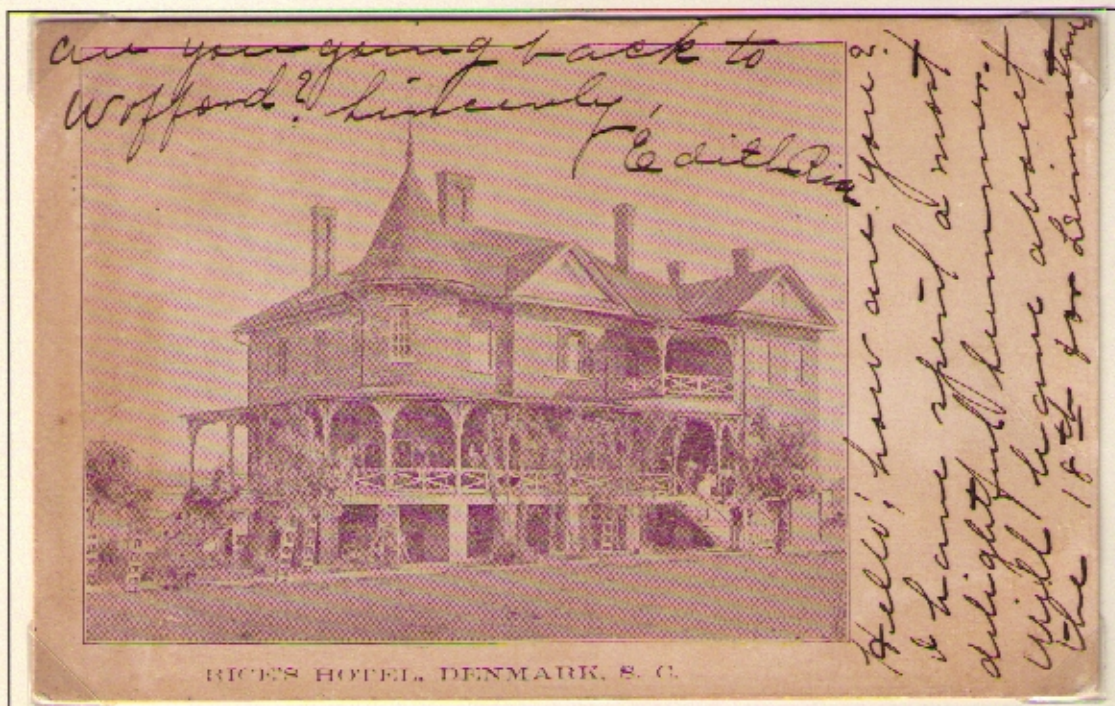 Hello, how are you?
I have spent a most
delightful summer.
Will leave about
the 18th for
are you going back to
Wofford? Sincerely,
Edith Rice
RICE'S HOTEL, DENMARK, S. C.